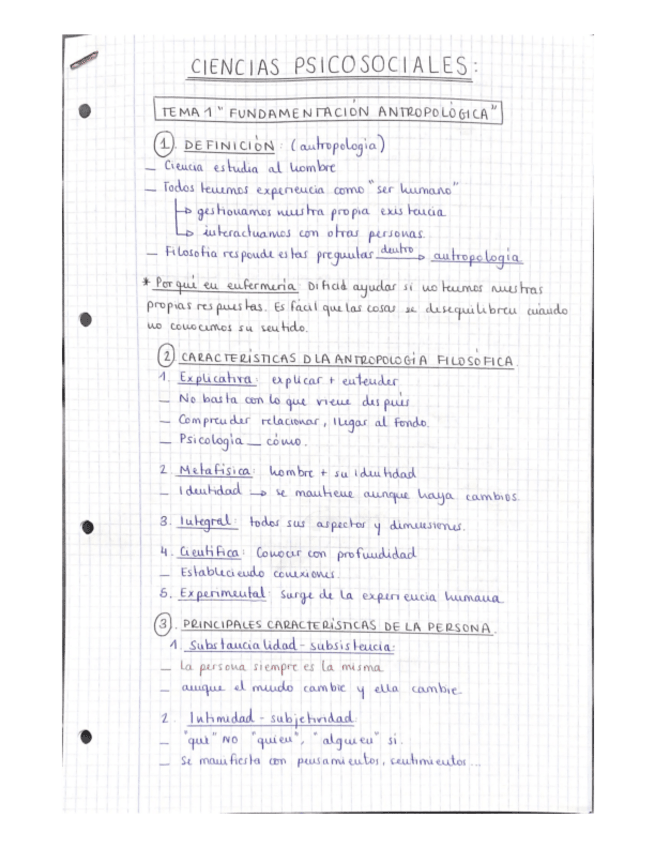 CIENCIAS PSICOSOCIALES:
TEMA 1 "FUNDAMENTACIÓN ANTROPOLÓGICA"
1. DEFINICIÓN: (autropologia)
_ Ciencia estudia al hombre
_ Todos tenemos experiencia como "ser humano"
↳ gestionamos nuestra propia existencia
↳ interactuamos con otras personas.
_ Filosofia responde estas preguntas dentro → autropologia
* Por qué en enfermeria: Dificid ayudar si no tenemos nuestras
propias respuestas. Es fácil que las cosas se desequilibren cuando
no conocemos su sentido.
2 CARACTERÍSTICAS D LA ANTROPOLOGÍA FILOSÓFICA
1. Explicativa: explicar + entender
_ No basta con lo que viene después
_ Comprender relacionar, llegar al fondo.
_ Psicología _ cómo.
2. Metafísica: hombre + su identidad
_ Identidad → se mantiene aunque haya cambios.
3. Integral: todos sus aspectos y dimensiones.
4. Científica: Conocer con profundidad
_ Estableciendo conexiones.
5. Experimental: Surge de la experiencia humana
3. PRINCIPALES CARACTERÍSTICAS DE LA PERSONA.
1. Substancialidad - subsistencia:
_ la persona siempre es la misma
_ aunque el mundo cambie y ella cambie.
2. Intimidad - subjetividad
_ "qué" NO "quien", "alguien" si.
_ Se manifiesta con pensamientos, sentimientos...